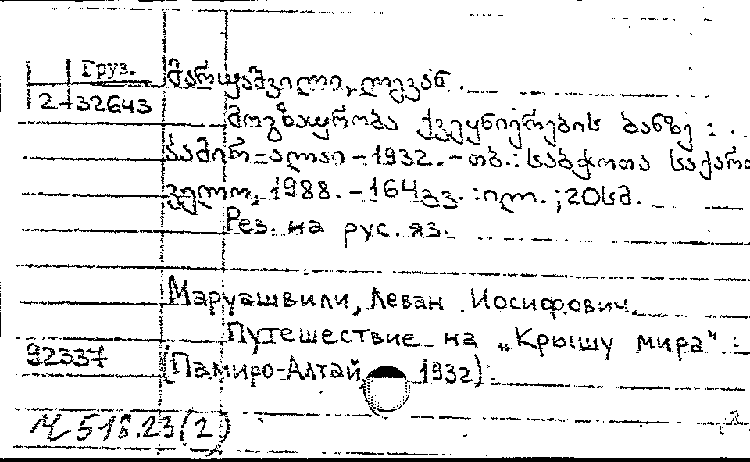 Груз.
2-32643
მარუაშვილი, ლევან.
მოგზაურობა ქვეყნიერების ბანზე :
პამირ-ალაი - 1932. - თბ. : საბჭოთა საქართ
ველო, 1988. - 164 გვ. : ილ. ; 20 სმ.
Рез. на рус. яз.
Маруашвили, Леван Иосифович.
Путешествие на „Крышу мира" :
92337
(Памиро-Алтай, 1932).
Ч 518.23(2)